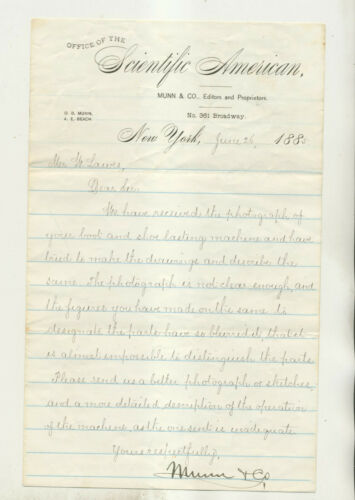 OFFICE OF THE
Scientific American,
MUNN & CO., Editors and Proprietors.
O. D. MUNN,
A. E. BEACH.
No. 361 Broadway.
New York, June 26, 188
Mr. W Lawes,
Dear Sir.
We have received the photograph of
your boot and shoe lasting machine and have
tried to make the drawings and describe the
same. The photograph is not clear enough, and
the figures you have made on the same to
designate the parts have so blurred it, that it
is almost impossible to distinguish the parts.
Please send us a better photograph or sketches
and a more detailed description of the operation
of the machine, as the one sent is inadequate
Yours respectfully,
Munn & Co,